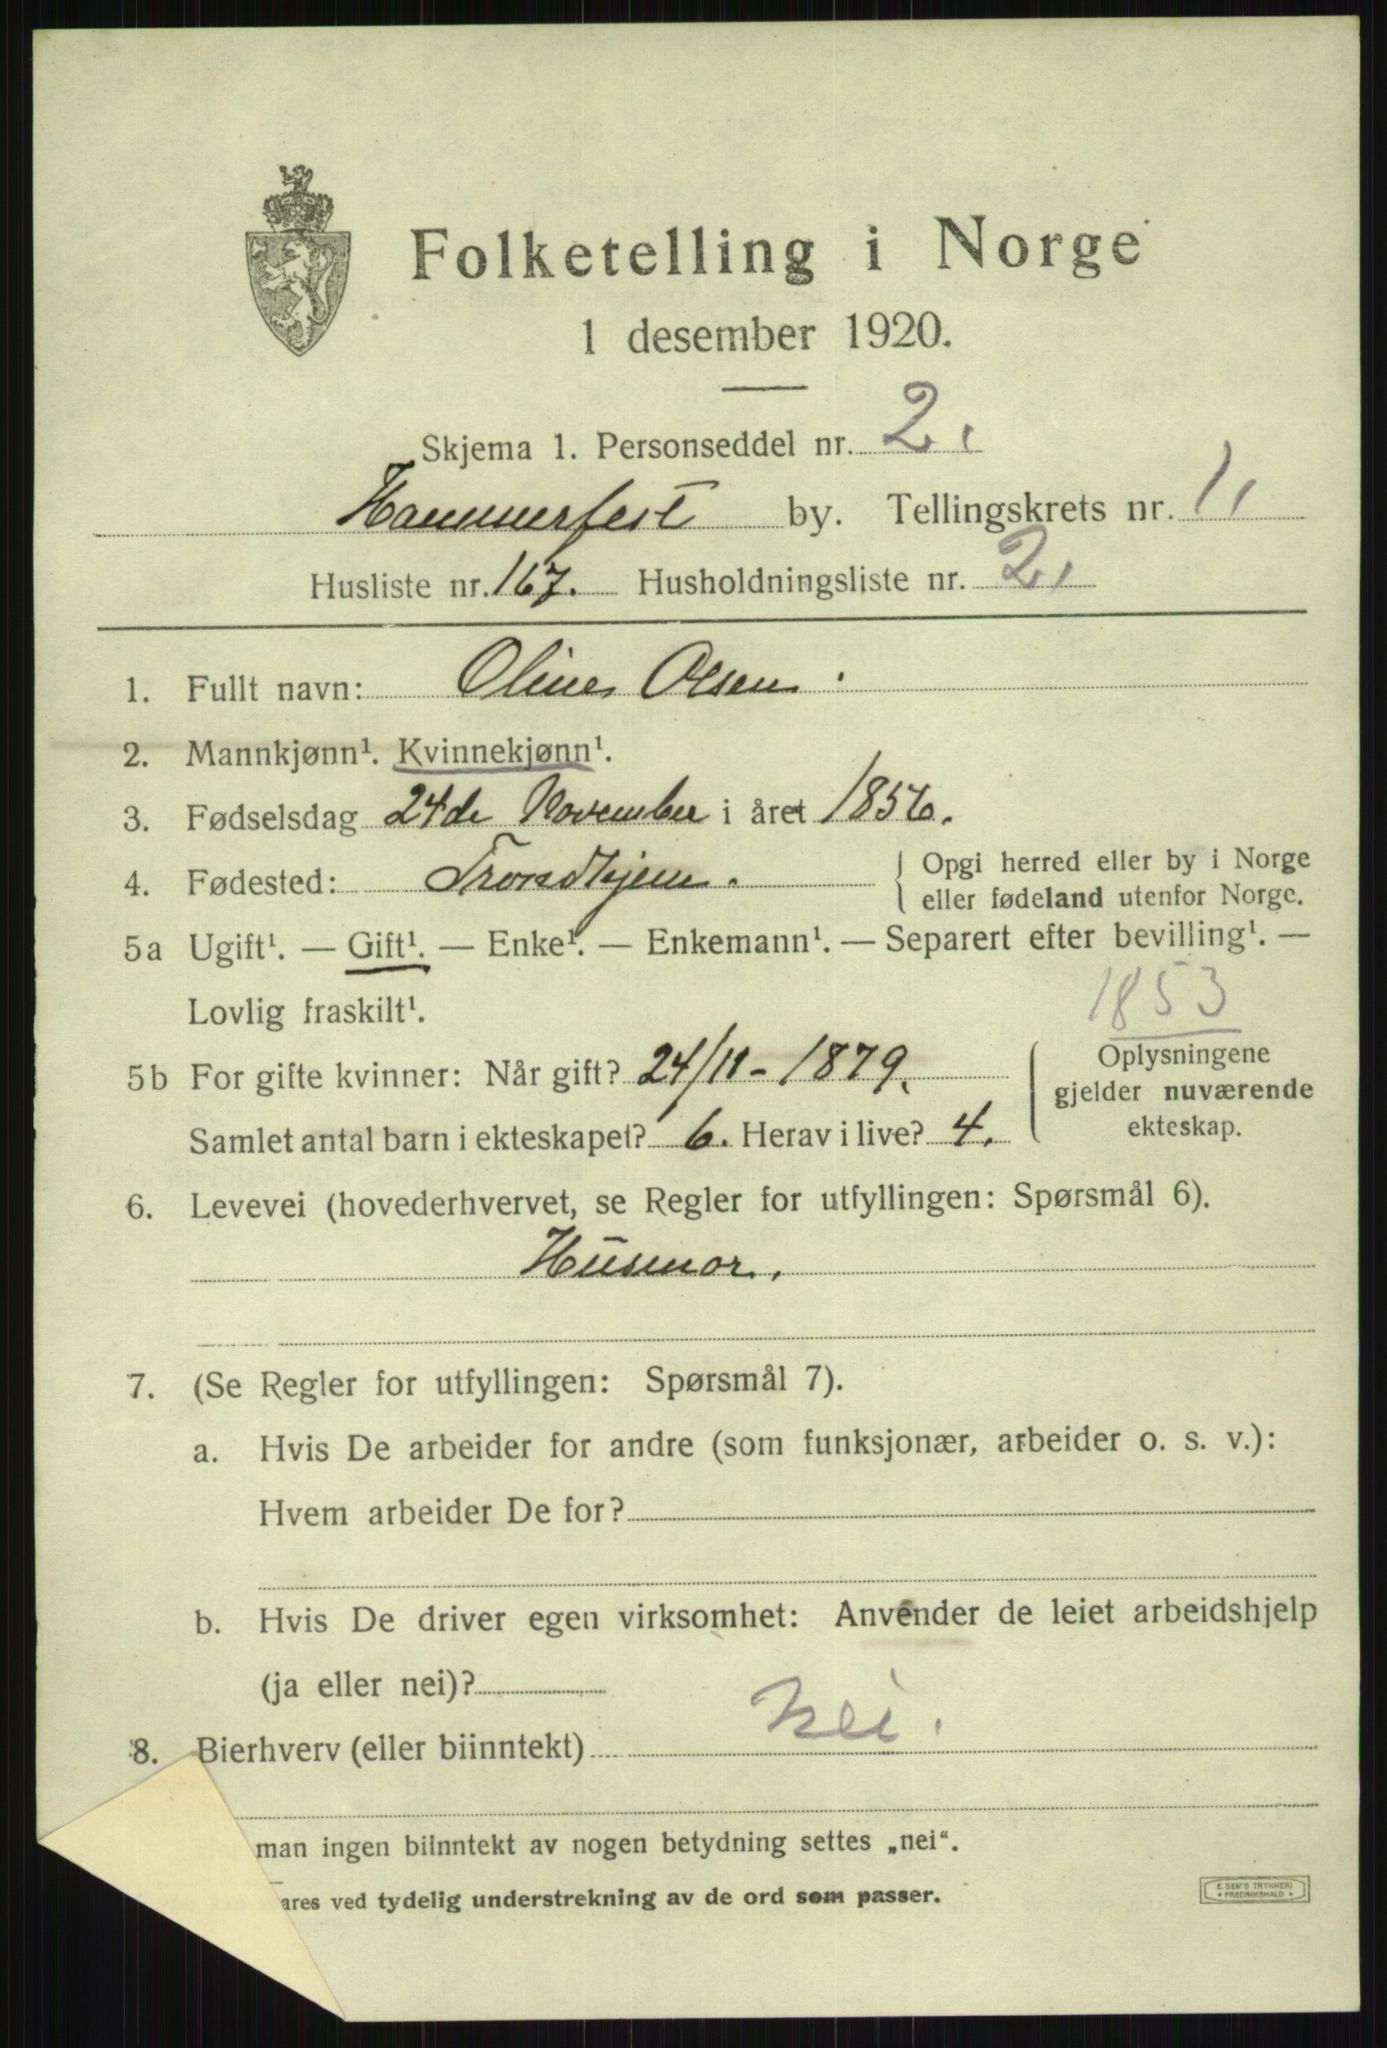 Folketelling i Norge
1 desember 1920.
Skjema 1. Personseddel nr. 2.
Hammerfest by. Tellingskrets nr. 1.
Husliste nr. 167. Husholdningsliste nr. 2.
1. Fullt navn: Oline Olsen.
2. Mannkjønn¹. Kvinnekjønn¹.
3. Fødselsdag 24de November i året 1856.
4. Fødested: Trondhjem. Opgi herred eller by i Norge
eller fødeland utenfor Norge.
5a Ugift¹. — Gift¹. — Enke¹. — Enkemann¹. — Separert efter bevilling¹. —
Lovlig fraskilt¹.
1853
5b For gifte kvinner: Når gift? 24/11-1879.
Samlet antal barn i ekteskapet? 6. Herav i live? 4.
Oplysningene
gjelder nuværende
ekteskap.
6. Levevei (hovederhvervet, se Regler for utfyllingen: Spørsmål 6).
Husmor.
7. (Se Regler for utfyllingen: Spørsmål 7).
a. Hvis De arbeider for andre (som funksjonær, arbeider o. s. v.):
Hvem arbeider De for?
b. Hvis De driver egen virksomhet: Anvender de leiet arbeidshjelp
(ja eller nei)?
8. Bierhverv (eller biinntekt) Nei.
man ingen biinntekt av nogen betydning settes „nei“.
ares ved tydelig understrekning av de ord som passer.
E. SEM'S TRYKKERI
• FREDRIKSHALD •